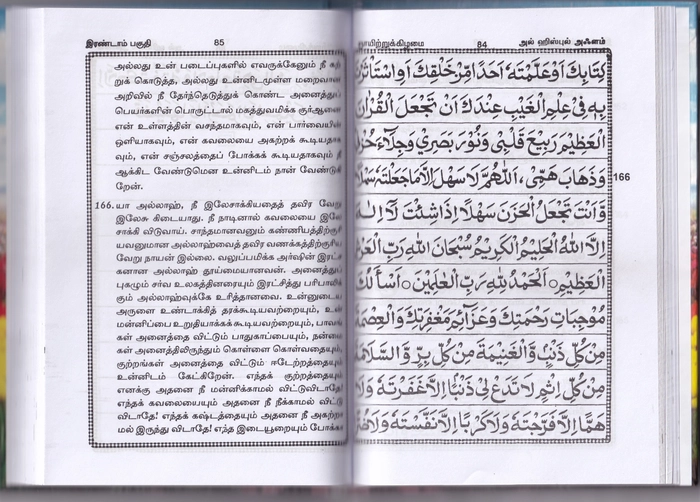 இரண்டாம் பகுதி 85
அல்லது உன் படைப்புகளில் எவருக்கேனும் நீ கற்
றுக் கொடுத்த, அல்லது உன்னிடமுள்ள மறைவான
அறிவில் நீ தேர்ந்தெடுத்துக் கொண்ட அனைத்துப்
பெயர்களின் பொருட்டால் மகத்துவமிக்க குர்ஆனை
என் உள்ளத்தின் வசந்தமாகவும், என் பார்வையின்
ஒளியாகவும், என் கவலையை அகற்றக் கூடியதாக
வும், என் சஞ்சலத்தைப் போக்கக் கூடியதாகவும் நீ
ஆக்கிட வேண்டுமென உன்னிடம் நான் வேண்டுகி
றேன்.
166. யா அல்லாஹ், நீ இலேசாக்கியதைத் தவிர வேறு
இலேசு கிடையாது. நீ நாடினால் கவலையை இலே
சாக்கி விடுவாய். சாந்தமானவனும் கண்ணியத்திற்குரி
யவனுமான அல்லாஹ்வைத் தவிர வணக்கத்திற்குரிய
வேறு நாயன் இல்லை. வலுப்பமிக்க அர்ஷின் இரட்ச
கனான அல்லாஹ் தூய்மையானவன். அனைத்துப்
புகழும் சர்வ உலகத்தினரையும் இரட்சித்து பரிபாலிக்
கும் அல்லாஹ்வுக்கே உரித்தானவை. உன்னுடைய
அருளை உண்டாக்கித் தரக்கூடியவற்றையும், உன்
மன்னிப்பை உறுதியாக்கக்கூடியவற்றையும், பாவங்
கள் அனைத்தை விட்டும் பாதுகாப்பையும், நன்மை
கள் அனைத்திலிருந்தும் கொள்ளை கொள்வதையும்,
குற்றங்கள் அனைத்தை விட்டும் ஈடேற்றத்தையும்
உன்னிடம் கேட்கிறேன். எந்தக் குற்றத்தையும்
எனக்கு அதனை நீ மன்னிக்காமல் விட்டுவிடாதே!
எந்தக் கவலையையும் அதனை நீ நீக்காமல் விட்டு
விடாதே! எந்தக் கஷ்டத்தையும் அதனை நீ அகற்றா
மல் இருந்து விடாதே! எந்த இடையூறையும் போக்க
ஞாயிற்றுக்கிழமை 84 அல் ஹிஸ்புல் அஃளம்
كِتَابِكَ اَوْعَلَّمْتَهٗ اَحَدًا مِّنْ خَلْقِكَ اَوِاسْتَأْثَرْتَ
بِهٖ فِيْ عِلْمِ الْغَيْبِ عِنْدَكَ اَنْ تَجْعَلَ الْقُرْاٰنَ
الْعَظِيْمَ رَبِيْعَ قَلْبِيْ وَنُوْرَ بَصَرِيْ وَجِلَاۤءَ حُزْنِيْ
وَذَهَابَ هَمِّيْ، اَللّٰهُمَّ لَا سَهْلَ اِلَّا مَاجَعَلْتَهٗ سَهْلًا 166
وَّاَنْتَ تَجْعَلُ الْحَزَنَ سَهْلًا اِذَا شِئْتَ لَاۤ اِلٰهَ
اِلَّا اللهُ الْحَلِيْمُ الْكَرِيْمُ سُبْحَانَ اللهِ رَبِّ الْعَرْشِ
الْعَظِيْمِ۝ اَلْحَمْدُ لِلّٰهِ رَبِّ الْعٰلَمِيْنَ۝ اَسْأَلُكَ
مُوْجِبَاتِ رَحْمَتِكَ وَعَزَاۤئِمَ مَغْفِرَتِكَ وَالْعِصْمَةَ
مِنْ كُلِّ ذَنْبٍ وَّالْغَنِيْمَةَ مِنْ كُلِّ بِرٍّ وَّالسَّلَامَةَ
مِنْ كُلِّ اِثْمٍ لَا تَدَعْ لِيْ ذَنْبًا اِلَّا غَفَرْتَهٗ وَلَا
هَمًّا اِلَّا فَرَّجْتَهٗ وَلَا كَرْبًا اِلَّا نَفَّسْتَهٗ وَلَا